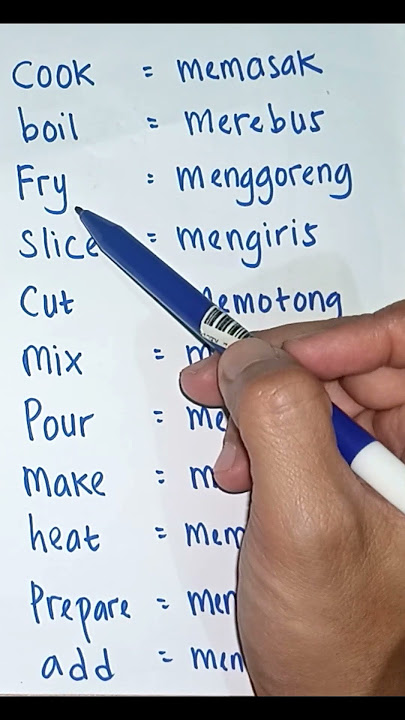 Cook = memasak
boil = merebus
Fry = menggoreng
Slice = mengiris
Cut memotong
mix =
Pour =
make =
heat =
Prepare =
add =